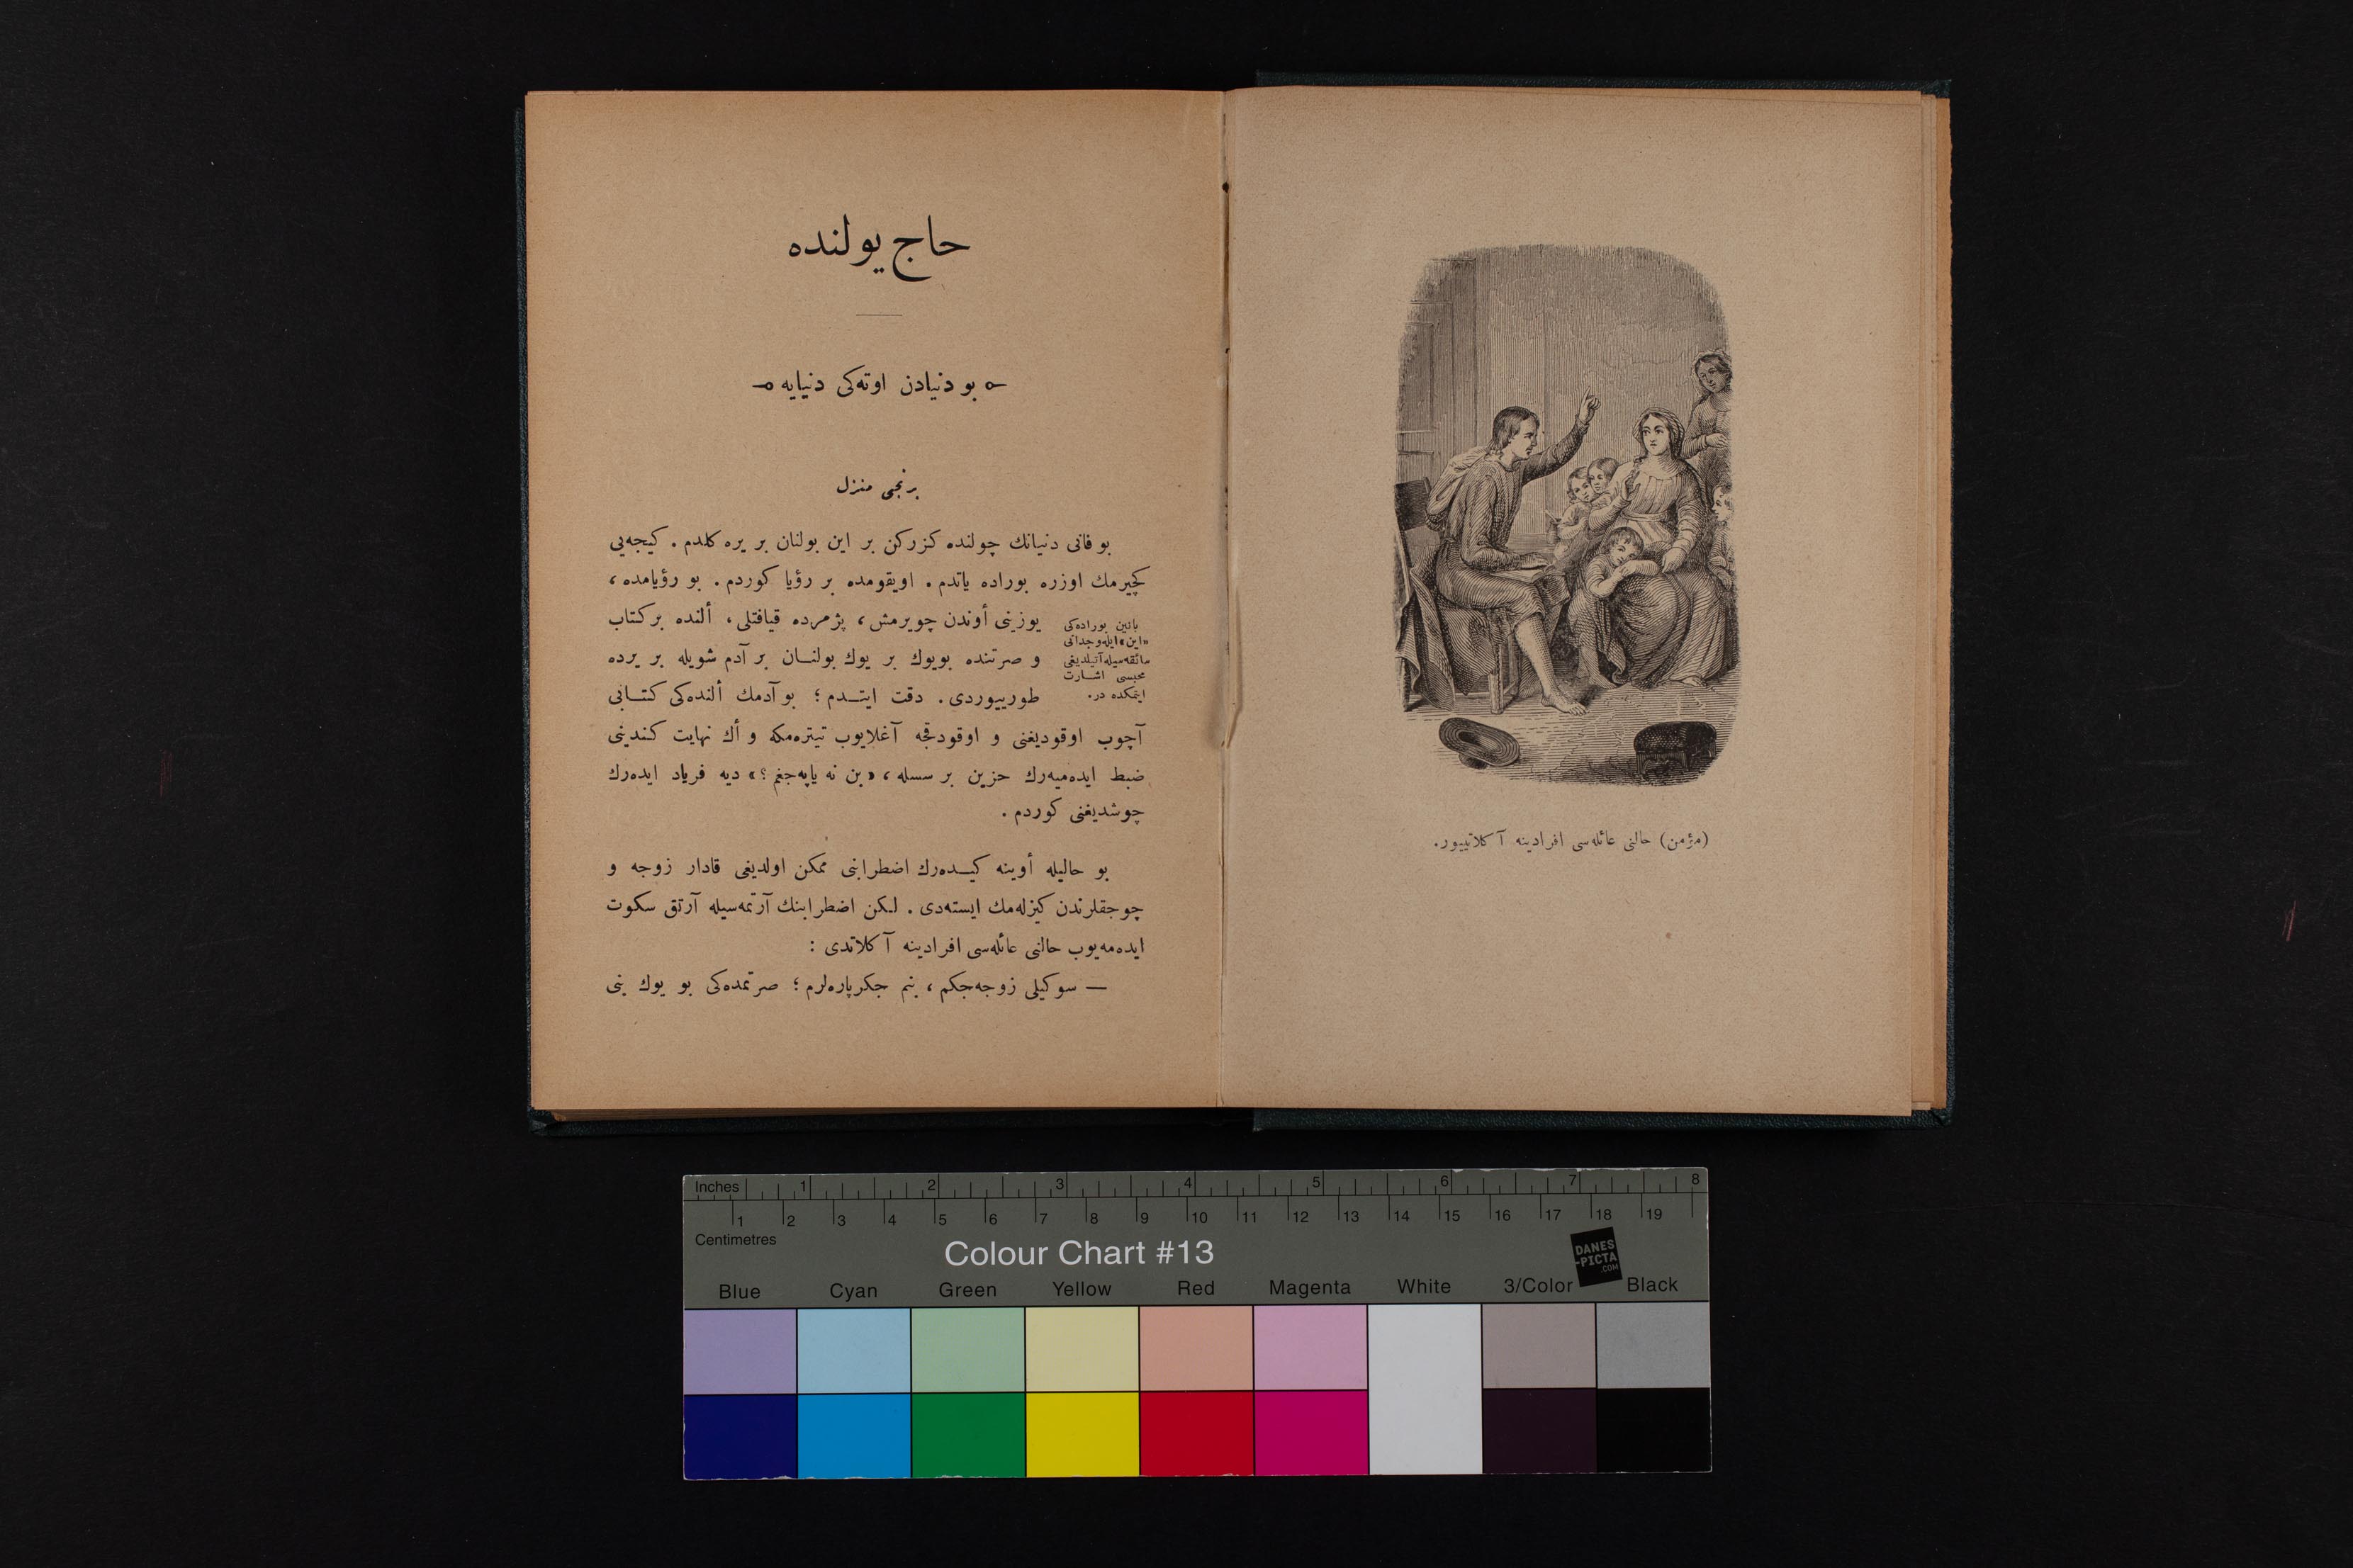 (مؤمن) حالنی عائله‌سی افرادینه آکلاتییور.
حاج یولنده
بو دنیادن اوته‌کی دنیایه
برنجی منزل
بو فانی دنیانك چولنده کزرکن بر این بولنان بر یره کلدم. کیجه‌یی
کچیرمك اوزره بوراده یاتدم. اویقومده بر رؤیا کوردم. بو رؤیامده،
یوزینی أوندن چویرمش، پژمرده قیافتلی، ألنده بر کتاب
و صرتنده بویوك بر یوك بولنـان بر آدم شویله بر یرده
طورییوردی. دقت ایتـدم؛ بو آدمك ألنده‌کی کتـابی
بانین بوراده‌کی
«این» ایله وجدانی
سائقه‌سیله آتیلدیغی
محبسی اشـارت
ایتمکده در.
آچوب اوقودیغنی و اوقودقجه آغلایوب تیتره‌مکه و أك نهایت کندینی
ضبط ایده‌میه‌رك حزین بر سسله، «بن نه یاپه‌جغم؟» دیه فریاد ایده‌رك
چوشدیغنی کوردم.
بو حالیله أوینه کیـده‌رك اضطرابنی ممکن اولدیغی قادار زوجه و
چوجقلرندن کیزله‌مك ایسته‌دی. لکن اضطرابنك آرتمه‌سیله آرتق سکوت
ایده‌مه‌یوب حالنی عائله‌سی افرادینه آکلاتدی:
— سوکیلی زوجه‌جکم، بنم جکرپاره‌لرم؛ صرتمده‌کی بو یوك بنی
Inches 1 2 3 4 5 6 7 8
1 2 3 4 5 6 7 8 9 10 11 12 13 14 15 16 17 18 19
Centimetres
Colour Chart #13
DANES
-PICTA
.COM
Blue Cyan Green Yellow Red Magenta White 3/Color Black